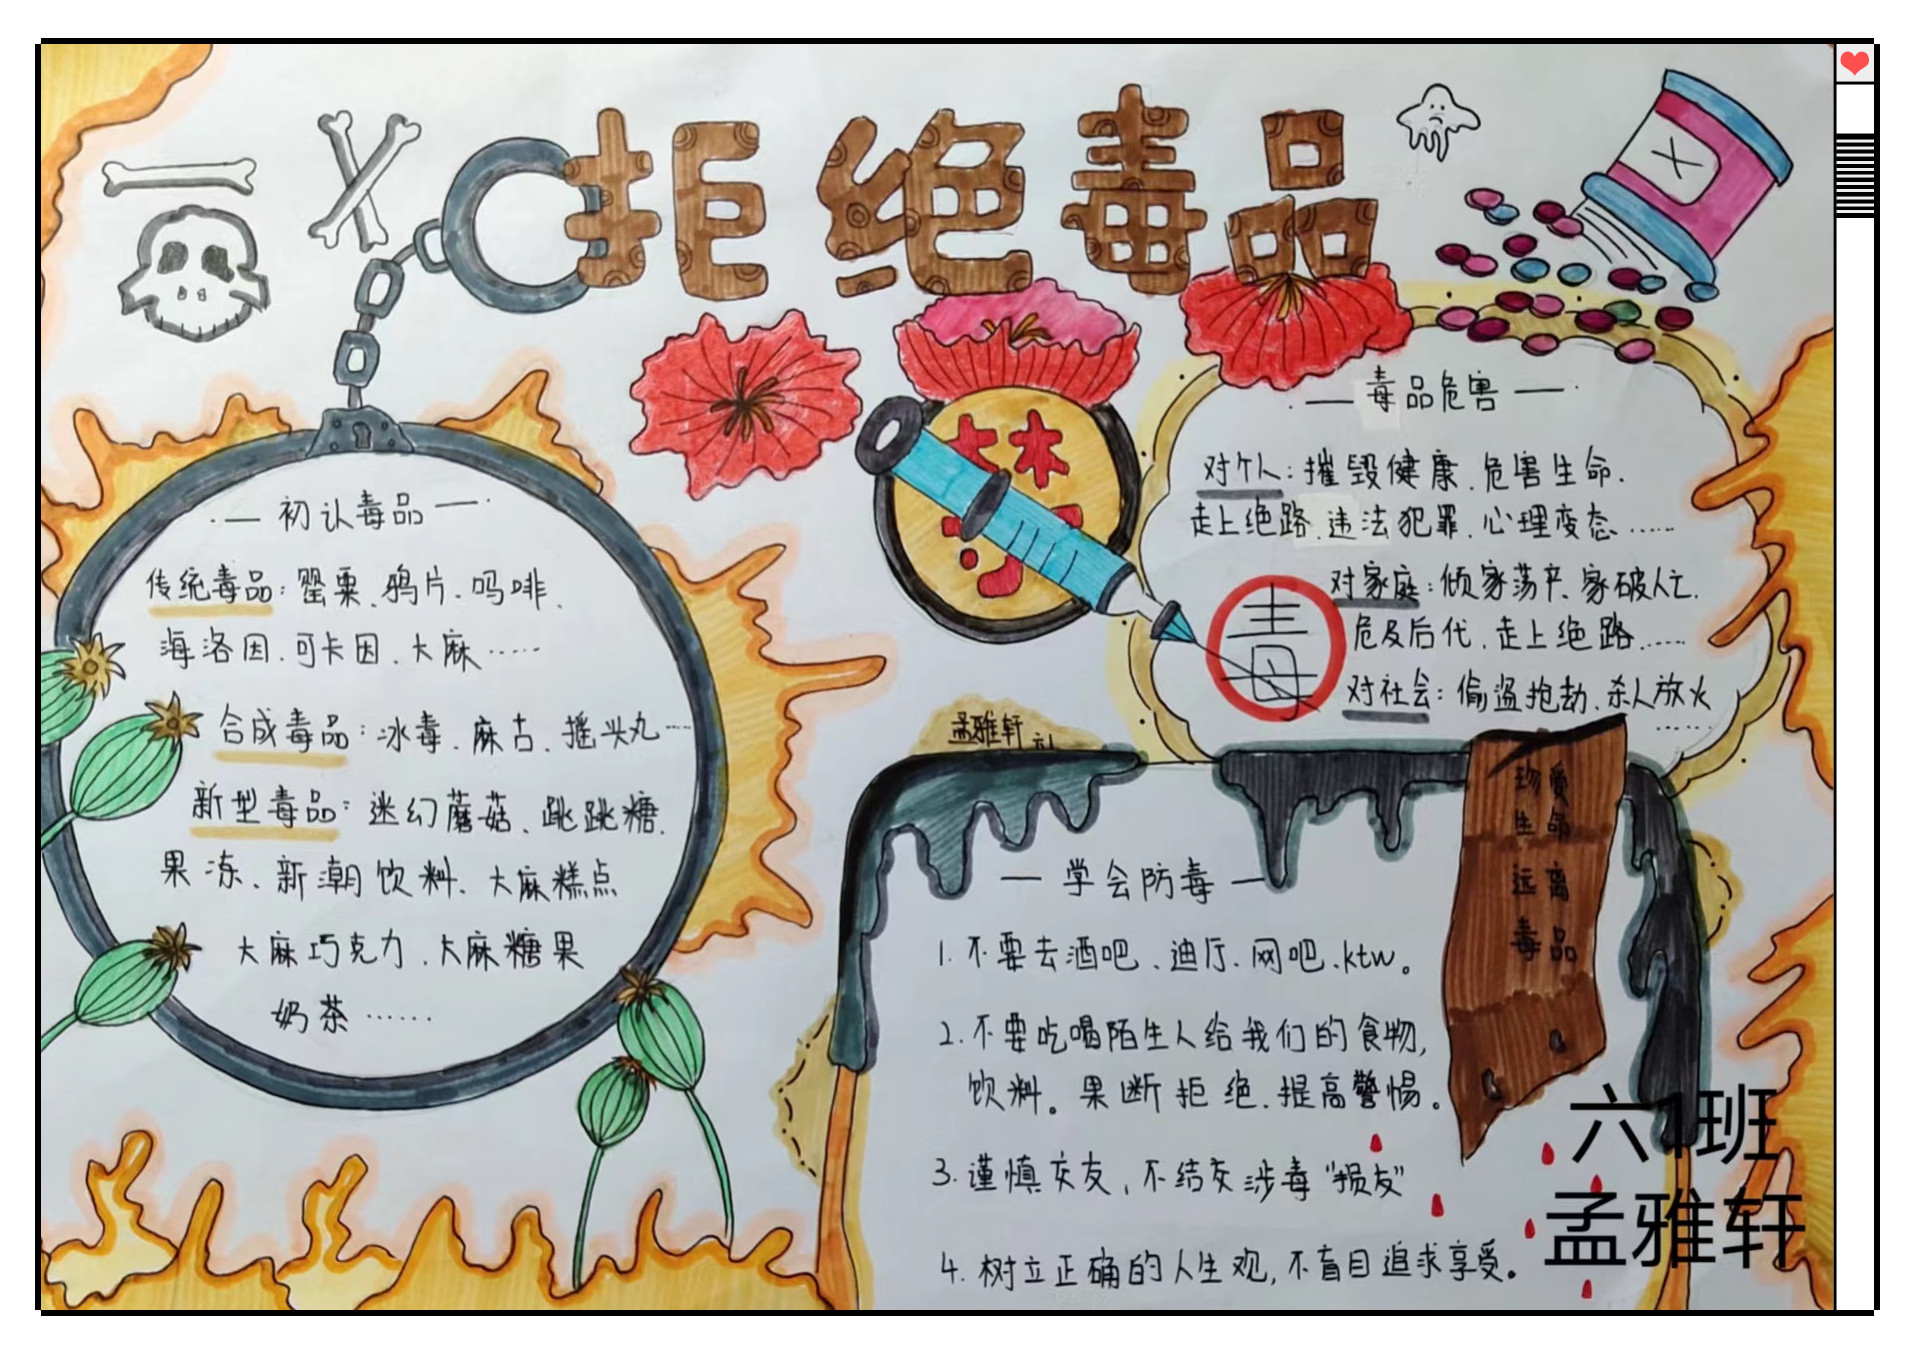 拒绝毒品
初认毒品
传统毒品：罂粟、鸦片、吗啡、
海洛因、可卡因、大麻……
合成毒品：冰毒、麻古、摇头丸…
新型毒品：迷幻蘑菇、跳跳糖、
果冻、新潮饮料、大麻糕点
大麻巧克力、大麻糖果
奶茶……
禁
毒品危害
对个人：摧毁健康、危害生命、
走上绝路、违法犯罪、心理变态……
对家庭：倾家荡产、家破人亡、
危及后代、走上绝路……
对社会：偷盗抢劫、杀人放火
……
毒
孟雅轩
珍爱
生命
远离
毒品
学会防毒
1.不要去酒吧、迪厅、网吧、ktw。
2.不要吃喝陌生人给我们的食物，
饮料。果断拒绝、提高警惕。
3.谨慎交友，不结交涉毒“损友”
4.树立正确的人生观，不盲目追求享受。
六1班
孟雅轩